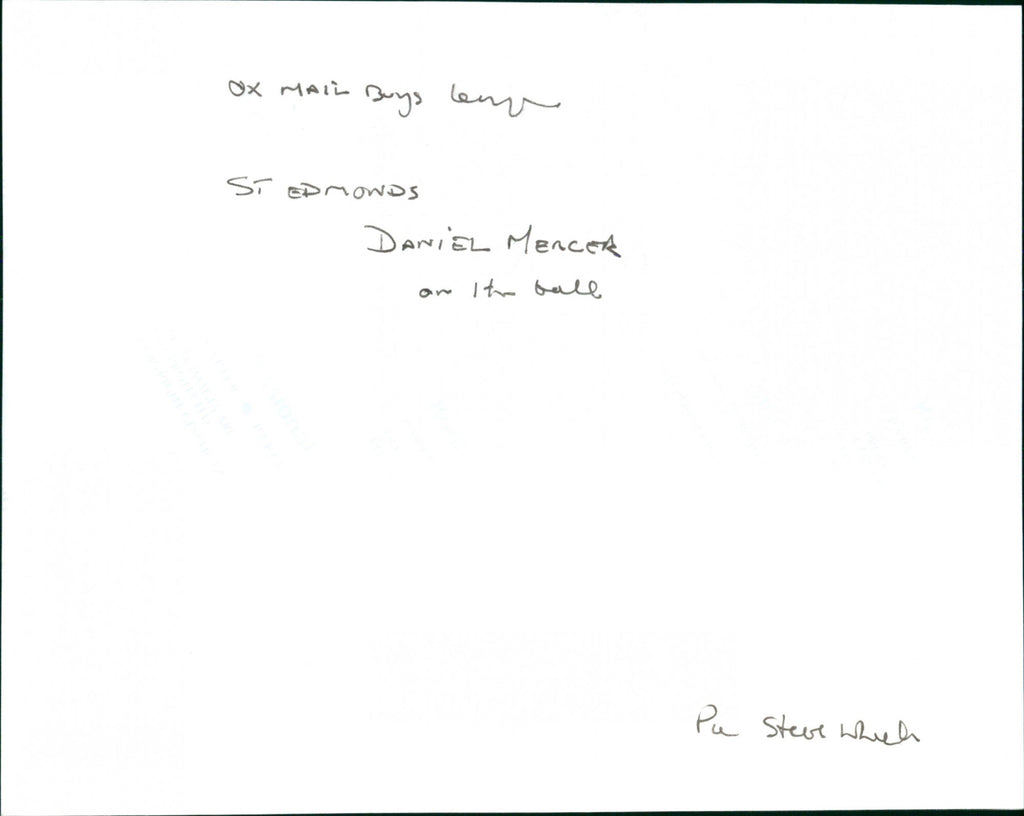 OX MAIL Boys League
ST EDMONDS
DANIEL MERCER
on the ball
Pic Steve